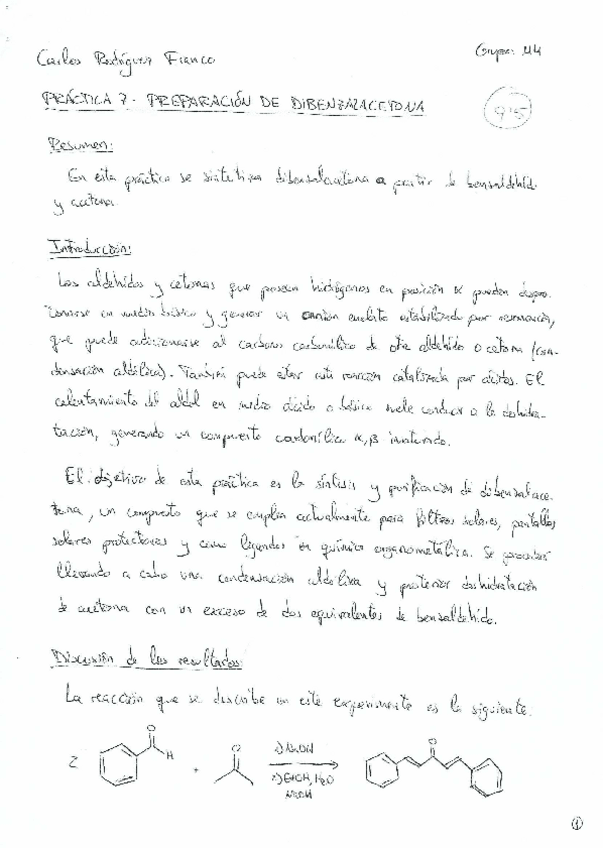 Carlos Rodríguez Franco
Grupo: M4
PRÁCTICA 7 - PREPARACIÓN DE DIBENZALACETONA
9'5
Resumen:
En esta práctica se sintetiza dibenzalacetona a partir de benzaldehído
y acetona.
Introducción:
Los aldehídos y cetonas que posean hidrógenos en posición α pueden despro-
tonarse en medio básico y generar un anión enolato estabilizado por resonancia,
que puede adicionarse al carbono carbonílico de otro aldehído o cetona (con-
densación aldólica). También puede estar esta reacción catalizada por ácidos. El
calentamiento del aldol en medio ácido o básico suele conducir a la deshidra-
tación, generando un compuesto carbonílico α,β insaturado.
El objetivo de esta práctica es la síntesis y purificación de dibenzalace-
tona, un compuesto que se emplea actualmente para filtros solares, pantallas
solares protectoras y como ligandos en química organometálica. Se procederá
llevando a cabo una condensación aldólica y posterior deshidratación
de acetona con un exceso de dos equivalentes de benzaldehído.
Discusión de los resultados:
La reacción que se describe en este experimento es la siguiente:
2
O
H
+
O
1)
2) EtOH, H2O
O
1